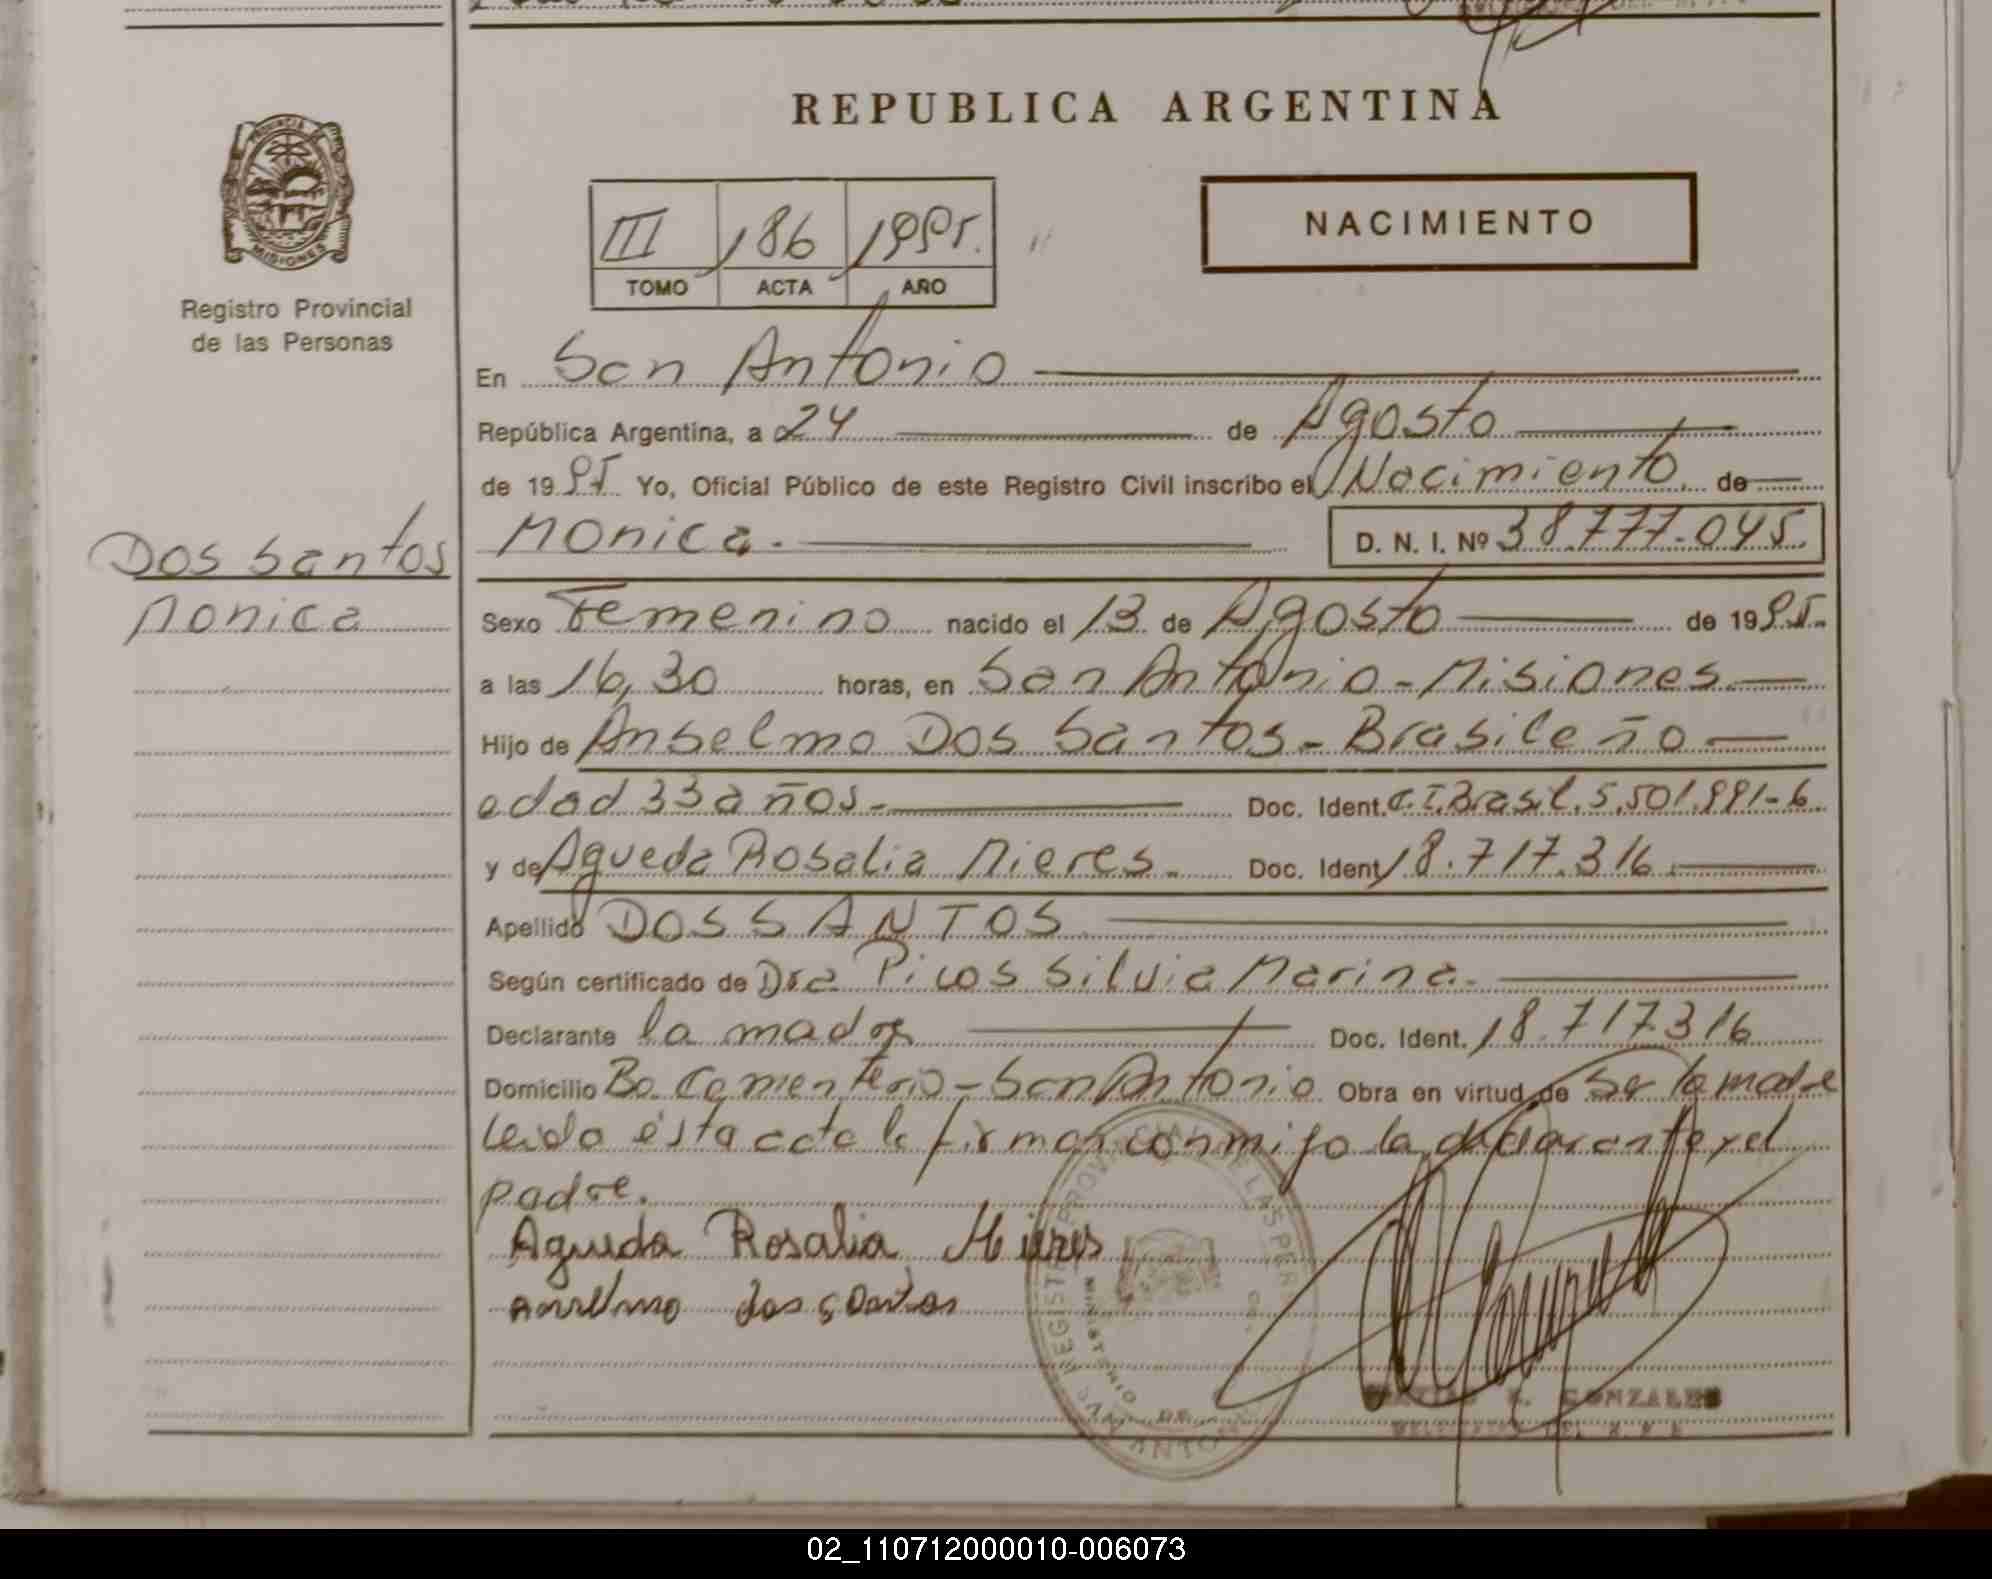 REPUBLICA ARGENTINA
PROVINCIA DE
MISIONES
Registro Provincial
de las Personas
III 186 1995.
TOMO ACTA AÑO
NACIMIENTO
En San Antonio
República Argentina, a 24 de Agosto
de 1995 Yo, Oficial Público de este Registro Civil inscribo el Nacimiento de
Dos Santos
Monica
Monica. D. N. I. Nº 38.777.045.
Sexo Femenino nacido el 13 de Agosto de 1995.
a las 16,30 horas, en San Antonio - Misiones
Hijo de Anselmo Dos Santos - Brasileño
edad 33 años. Doc. Ident. C.I. Brasil. 5.501.991-6
y de Agueda Rosalia Mieres. Doc. Ident 18.717.316
Apellido DOS SANTOS
Según certificado de Dra Picos Silvia Marina.
Declarante la madre Doc. Ident. 18.717.316
Domicilio Bo. Cementerio - San Antonio Obra en virtud de Ser la madre
Leida ésta acta la firman conmigo la declarante y el
padre.
Agueda Rosalia Mieres
anselmo dos santos
REGISTRO PROVINCIAL DE LAS PERS
MINISTERIO DE
SAN ANTONIO
GONZALEZ
02_110712000010-006073